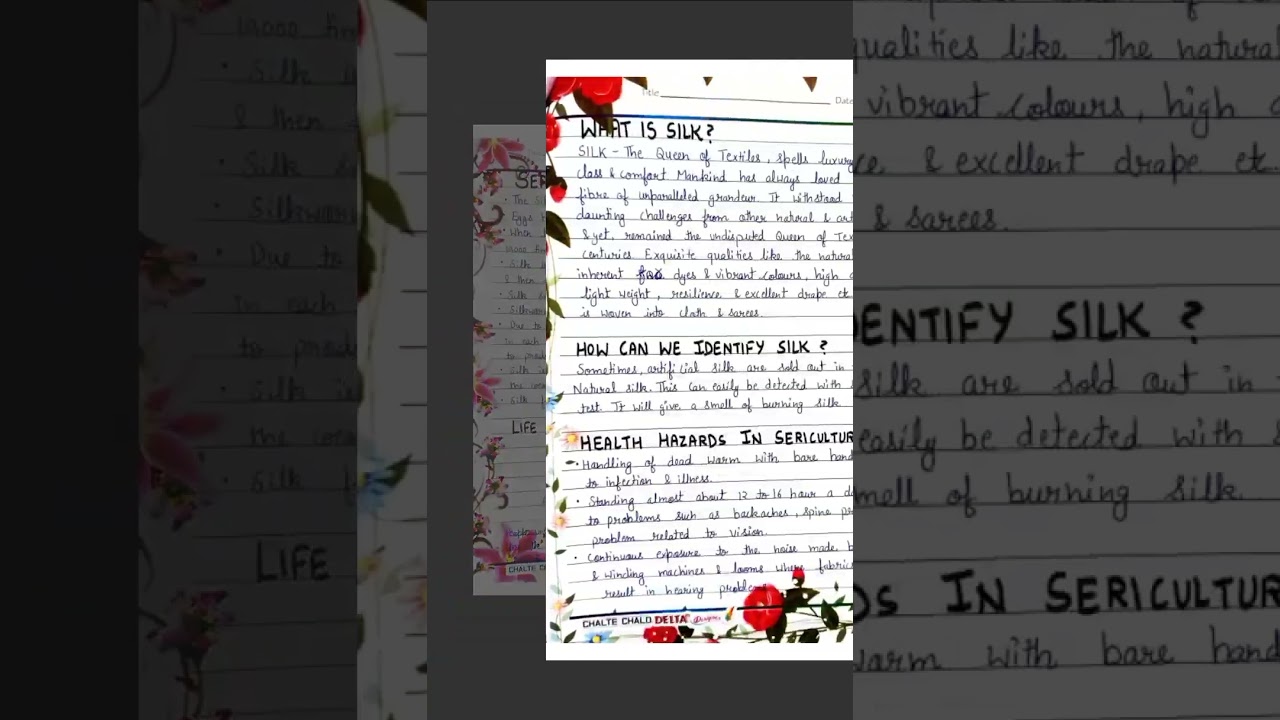 Title
Date
WHAT IS SILK?
SILK - The Queen of Textiles, spells luxury
class & comfort Mankind has always loved
fibre of unparalleled grandeur. It withstood
daunting challenges from other natural & art
& yet, remained the undisputed Queen of Tex
centuries. Exquisite qualities like the natura
inherent for dyes & vibrant colours, high
light weight, resilience & excellent drape etc
is woven into cloth & sarees.
HOW CAN WE IDENTIFY SILK ?
Sometimes, artificial silk are sold out in
Natural silk. This can easily be detected with
test. It will give a smell of burning silk
HEALTH HAZARDS IN SERICULTUR
• Handling of dead warm with bare hand
to infection & illness.
• Standing almost about 12 to 16 hour a da
to problems such as backaches, spine pr
problem related to vision.
• Continuous exposure to the noise made b
& winding machines & looms where fabric
result in hearing problem
CHALTE CHALO DELTA Designer
SER
• The Sil
Eggs h
• When
10,000
• Silk
& then
• Silk
• Silkwor
• Due to
in each
to produ
• Silk is
the coco
• Silk
LIFE
CHALTE C
10,000
• Silk
& then
• Silk
• Silkwor
• Due to
in each
to produ
• Silk is
the coco
• Silk
LIFE
qualities like the natural
vibrant colours, high
ce & excellent drape etc
& sarees.
DENTIFY SILK ?
silk are sold out in
easily be detected with
smell of burning silk.
DS IN SERICULTUR
warm with bare hand